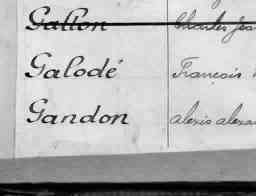 Gallon Charles Jea
Galodé François
Gandon alexis alexan